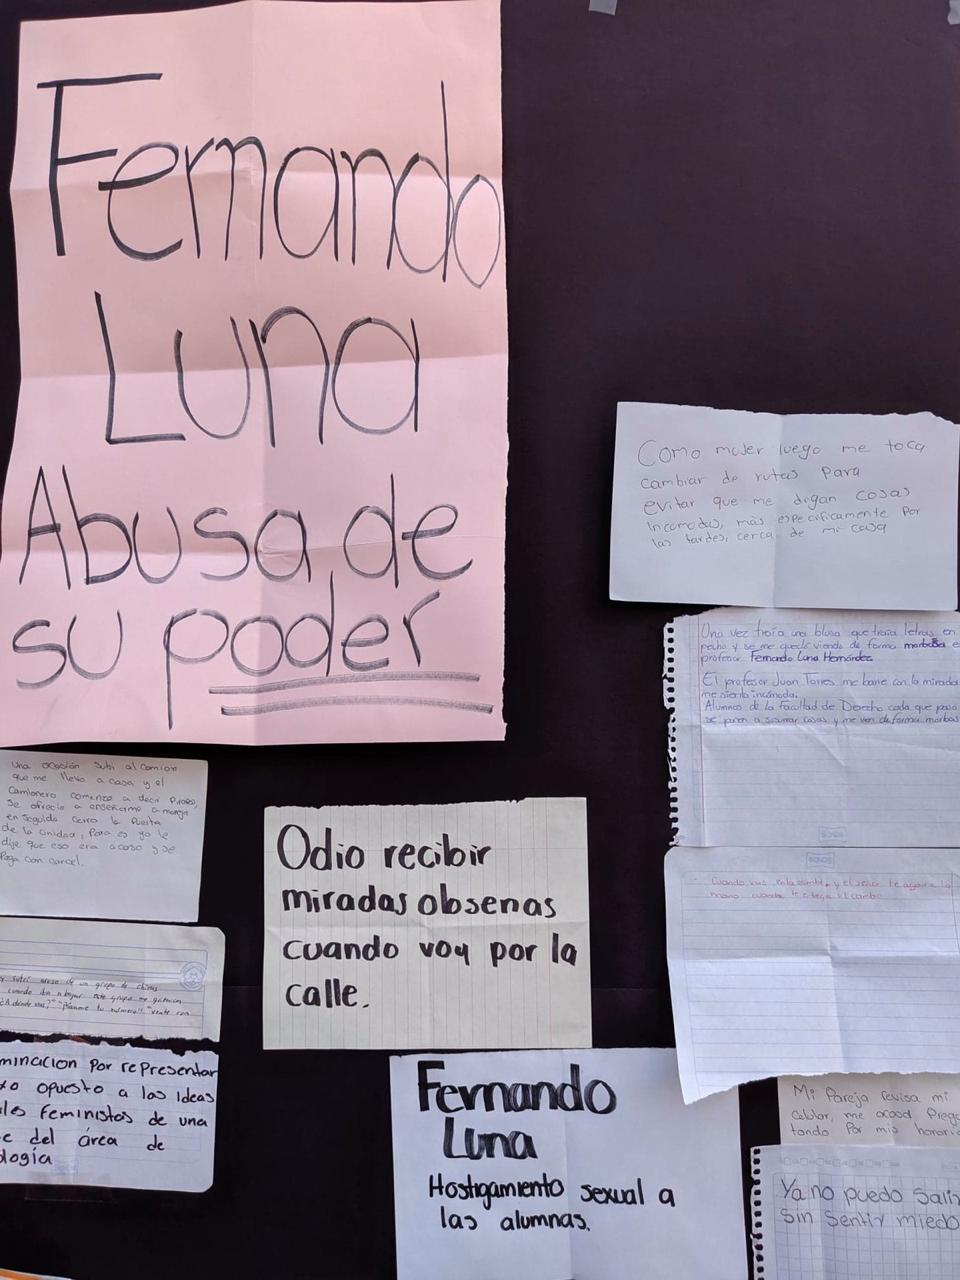 Fernando
Luna
Abusa de
su poder
Como mujer luego me toca
cambiar de rutas para
evitar que me digan cosas
incomodas, más especificamente por
las tardes, cerca de mi casa
Una vez traía una blusa que traía letras en
pecho y se me quedó viendo de forma morbosa e
profesor Fernando Luna Hernández.
El profesor Juan Torres me barre con la mirada
me siento incómoda.
Alumnos de la Facultad de Derecho cada que paso
se ponen a susurrar cosas y me ven de forma morbos
Una ocasión subí al camion
que me lleva a casa y el
camionero comenzo a decir piropos,
se ofrecio a enseñarme a manejar
en seguida cerro la puerta
de la unidad, para es yo le
dije que eso era acoso y se
Paga con carcel.
Odio recibir
miradas obsenas
cuando voy por la
calle.
Cuando vas en la combi, y el señor te agarra la
mano cuando te entrega el cambio
sufrí acoso de un grupo de chicos
cuando iba a bajar este grupo me gritaron
"¿A dónde vas?" "¡Pásame tu número!!" "vente con
minacion por representar
to opuesto a las ideas
les feministas de una
e del área de
ología
Fernando
Luna
Hostigamiento sexual a
las alumnas.
Mi Pareja revisa mi
celular, me acosa Pregu
tando Por mis horario
Ya no puedo salir
sin sentir miedo